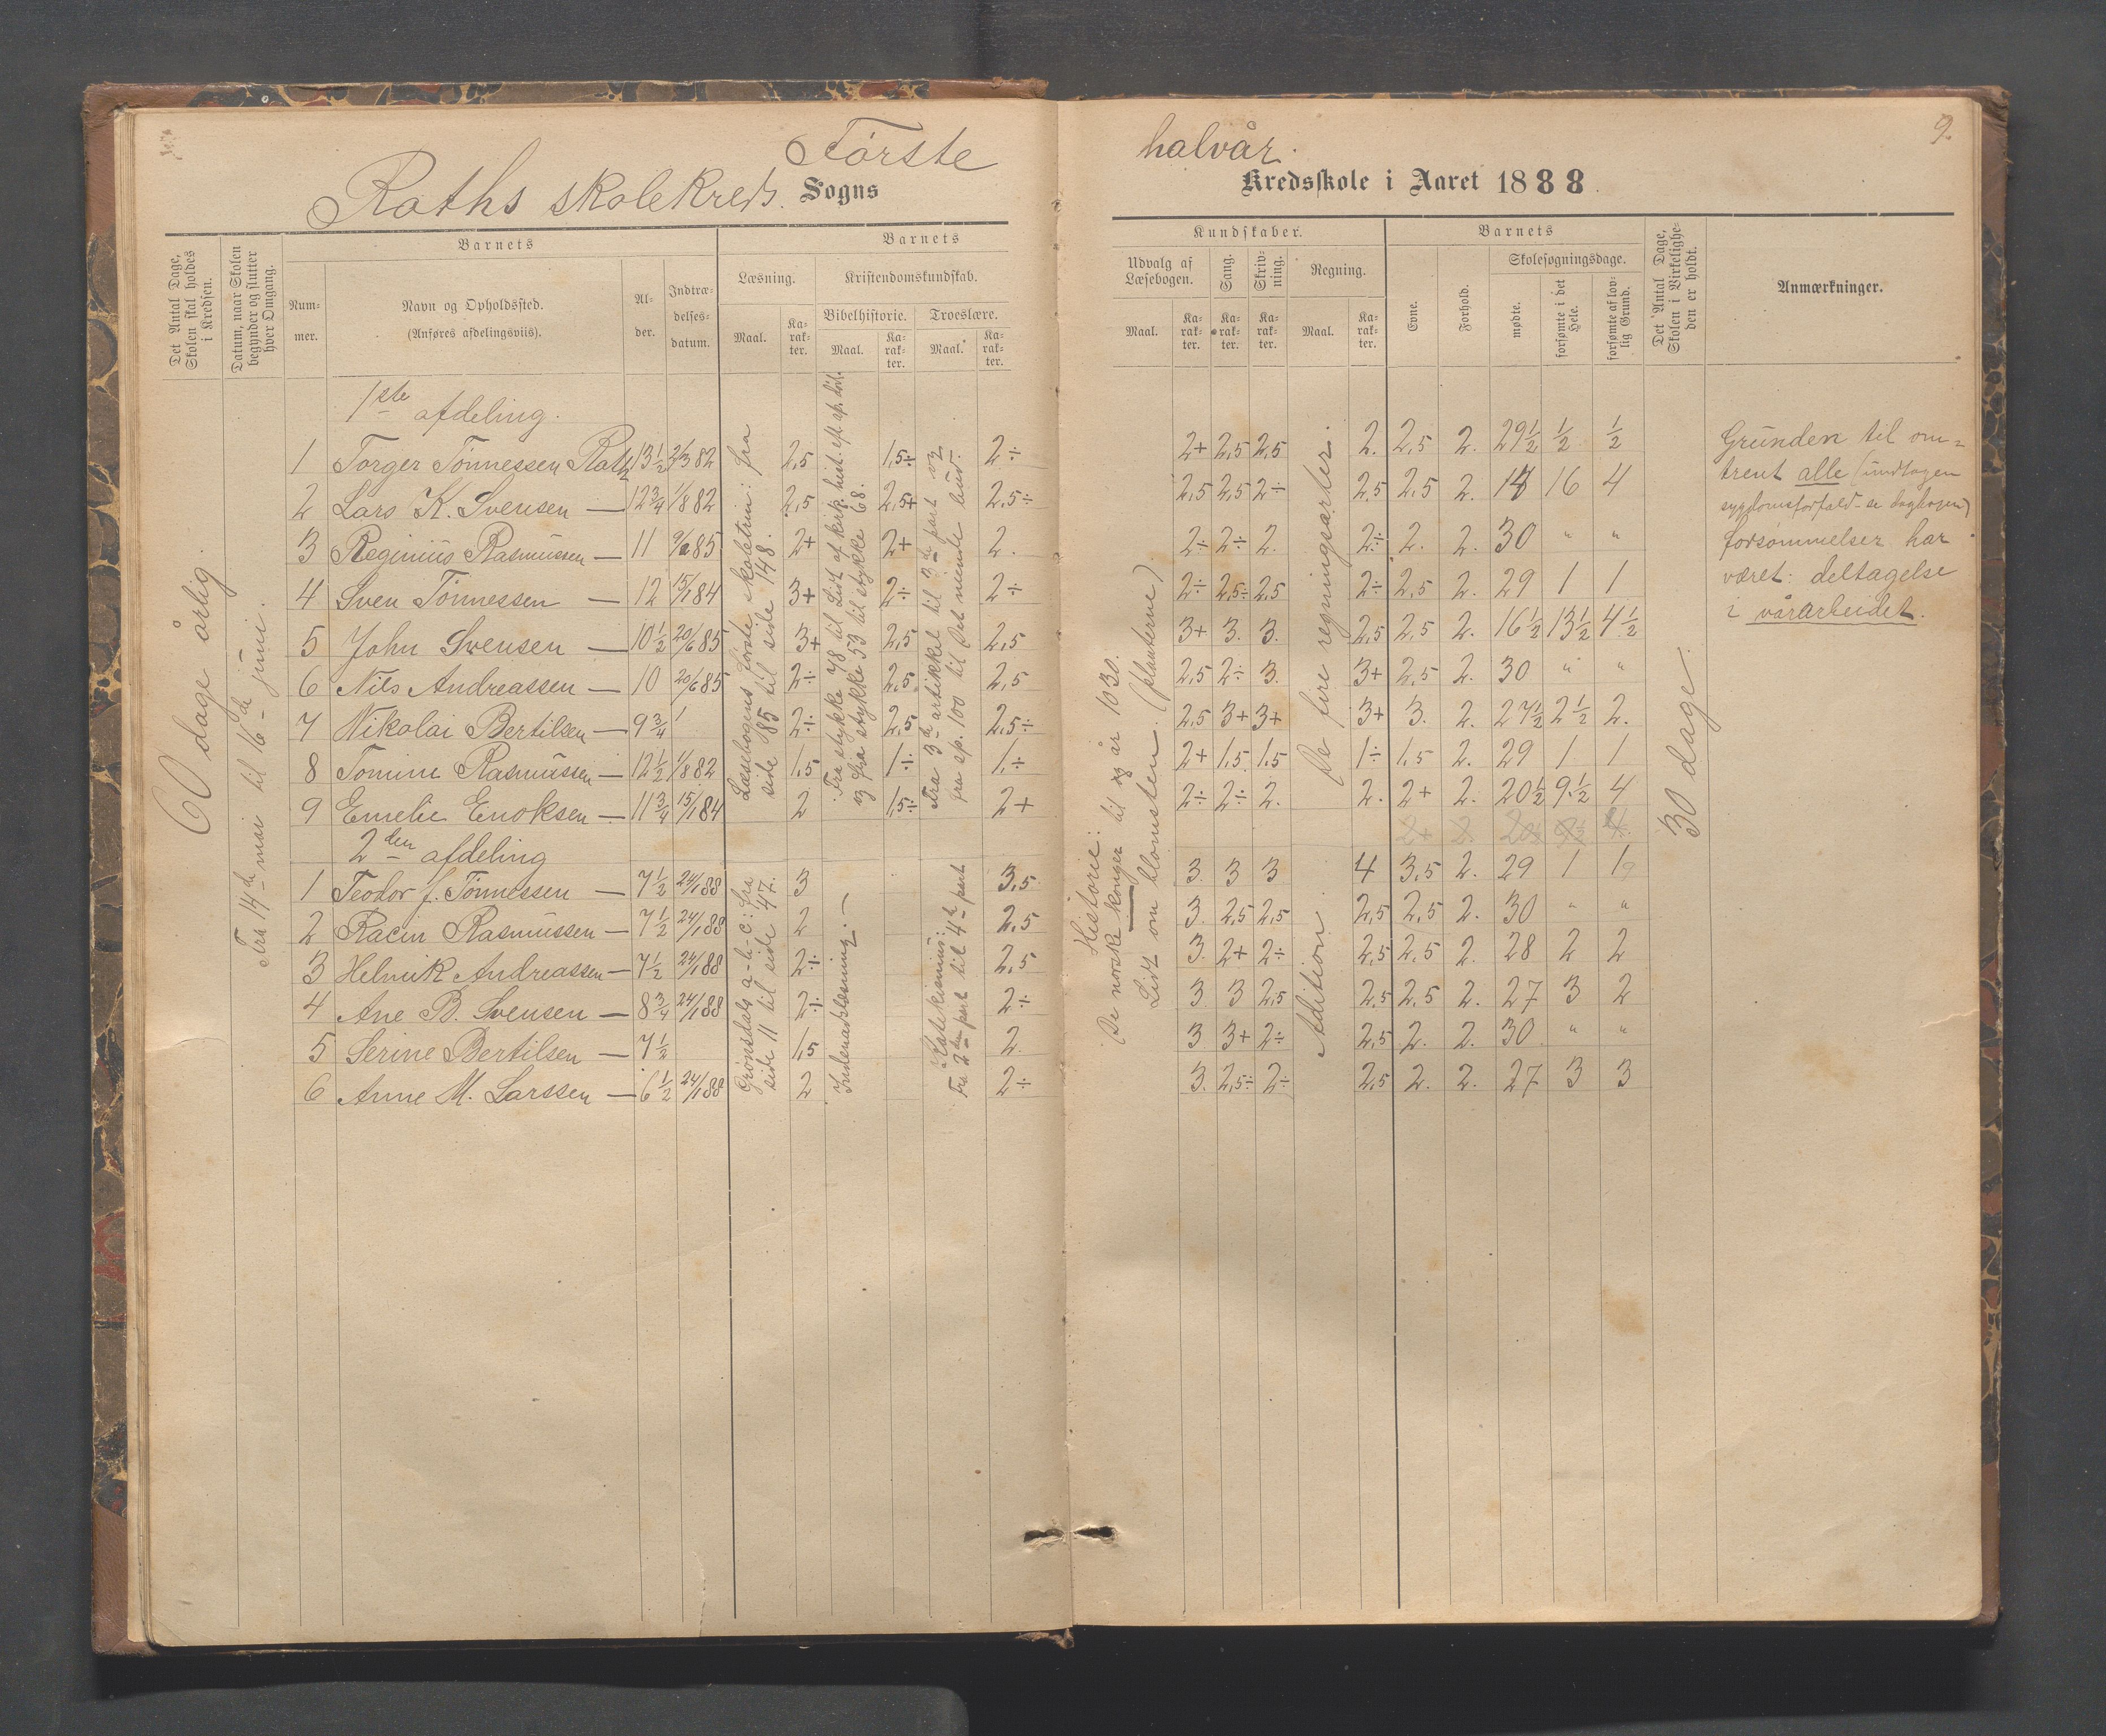 Første halvår. 9.
Raths skolekreds. Sogns Kredsskole i Aaret 1888.
Det Antal Dage, Skolen skal holdes i Kredsen.
Datum, naar Skolen begynder og slutter hver Omgang.
Barnets
Nummer.
Navn og Opholdssted.
(Anføres afdelingsviis).
Alder.
Indtrædelsesdatum.
Barnets
Læsning.
Maal.
Karakter.
Kristendomskundskab.
Bibelhistorie.
Maal.
Karakter.
Troeslære.
Maal.
Karakter.
Kundskaber.
Udvalg af Læsebogen.
Maal.
Karakter.
Sang.
Karakter.
Skrivning.
Karakter.
Regning.
Maal.
Karakter.
Barnets
Evne.
Forhold.
Skolesøgningsdage.
mødte.
forsømte i det Hele.
forsømte af lovlig Grund.
Det Antal Dage, Skolen i Virkeligheden er holdt.
Anmærkninger.
60 dage årlig.
Fra 14de mai til 16de juni.
1ste afdeling.
1 Torger Tønnessen Rath 13½ 2/3 82 2,5 1,5÷ 2÷ 2+ 2,5 2,5 2. 2,5 2. 29½ ½ ½
2 Lars K. Svensen — 12¾ 1/8 82 2,5 2,5+ 2,5÷ 2,5 2,5 2÷ 2,5 2,5 2. 14 16 4
3 Reginius Rasmussen — 11 85 2+ 2+ 2. 2÷ 2÷ 2. 2÷ 2. 2. 30 " "
4 Sven Tønnessen — 12 15/1 84 3+ 2÷ 2÷ 2÷ 2,5÷ 2,5 2÷ 2,5 2. 29 1 1
5 John Svensen — 10½ 20/6 85 3+ 2,5 2,5 3+ 3. 3. 2,5 2,5 2. 16½ 13½ 4½
6 Nils Andreassen — 10 20/6 85 2÷ 2,5 2,5 2,5 2÷ 3. 3+ 2,5 2. 30 " "
7 Nikolai Bertilsen — 9¾ 2÷ 2,5 2,5÷ 2,5 3+ 3+ 3+ 3. 2. 27½ 2½ 2.
8 Tomine Rasmussen — 12½ 1/8 82 1,5 1÷ 1÷ 2+ 1,5 1,5 1÷ 1,5 2. 29 1 1
9 Emelie Enoksen — 11¾ 15/1 84 2 1,5÷ 2+ 2÷ 2÷ 2. 2. 2+ 2. 20½ 9½ 4
2den afdeling
1 Teodor J. Tønnessen — 7½ 24/1 88 3 3,5 3. 3 3 4 3,5 2. 29 1 1
2 Racin Rasmussen — 7½ 24/1 88 2 2,5 3. 2,5 2,5 2,5 2,5 2. 30 " "
3 Helmik Andreassen — 7½ 24/1 88 2÷ 2,5 3. 2+ 2÷ 2,5 2,5 2. 28 2 2
4 Ane B. Svensen — 8¾ 24/1 88 2÷ 2÷ 3 3 2,5 2,5 2,5 2. 27 3 2
5 Serine Bertilsen — 7½ 1,5 2. 3 3+ 2÷ 2,5 2. 2. 30 " "
6 Anne M. Larssen — 6½ 24/1 88 2 2÷ 3. 2,5÷ 2÷ 2,5 2. 2. 27 3 3
Læsebogens første skoletrin: fra
side 85 til side 148.
Fra stykke 78 til Lidt af kirk. hist.
og fra stykke 53 til stykke 68.
Fra 3die artikkel til 3die part og
fra sp. 100 til Det niende bud.
Grønsdals a-b-c: fra
side 11 til side 47.
Indenadslæsning. —
Katekismus:
Fra 2den part til 4de part
Historie:
De norske konger til år 1030.
Lidt om blomsten. (planterne)
De fire regningsarter.
Adition.
30 dage.
Grunden til om=
trent alle (undtagen
sygdomsforfald - se dagbogen)
forsømmelser har
været: deltagelse
i vårarbeidet.